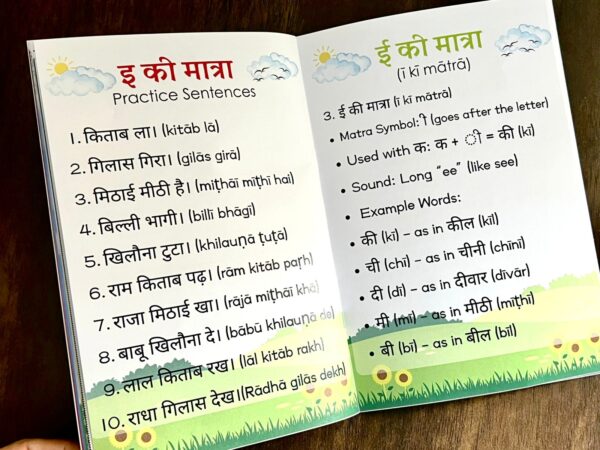 इ की मात्रा
Practice Sentences
1. किताब ला। (kitāb lā)
2. गिलास गिरा। (gilās girā)
3. मिठाई मीठी है। (miṭhāī mīṭhī hai)
4. बिल्ली भागी। (billī bhāgī)
5. खिलौना टुटा। (khilauṇā ṭuṭā)
6. राम किताब पढ़। (rām kitāb paṛh)
7. राजा मिठाई खा। (rājā miṭhāī khā)
8. बाबू खिलौना दे। (bābū khilauṇā de)
9. लाल किताब रख। (lāl kitāb rakh)
10. राधा गिलास देख।(Rādhā gilās dekh)
ई की मात्रा
(ī kī mātrā)
3. ई की मात्रा (ī kī mātrā)
• Matra Symbol: ी (goes after the letter)
• Used with क: क + ी = की (kī)
• Sound: Long "ee" (like see)
• Example Words:
• की (kī) – as in कील (kīl)
• ची (chī) – as in चीनी (chīnī)
• दी (dī) – as in दीवार (dīvār)
• मी (mī) – as in मीठी (mīṭhī)
• बी (bī) – as in बील (bīl)